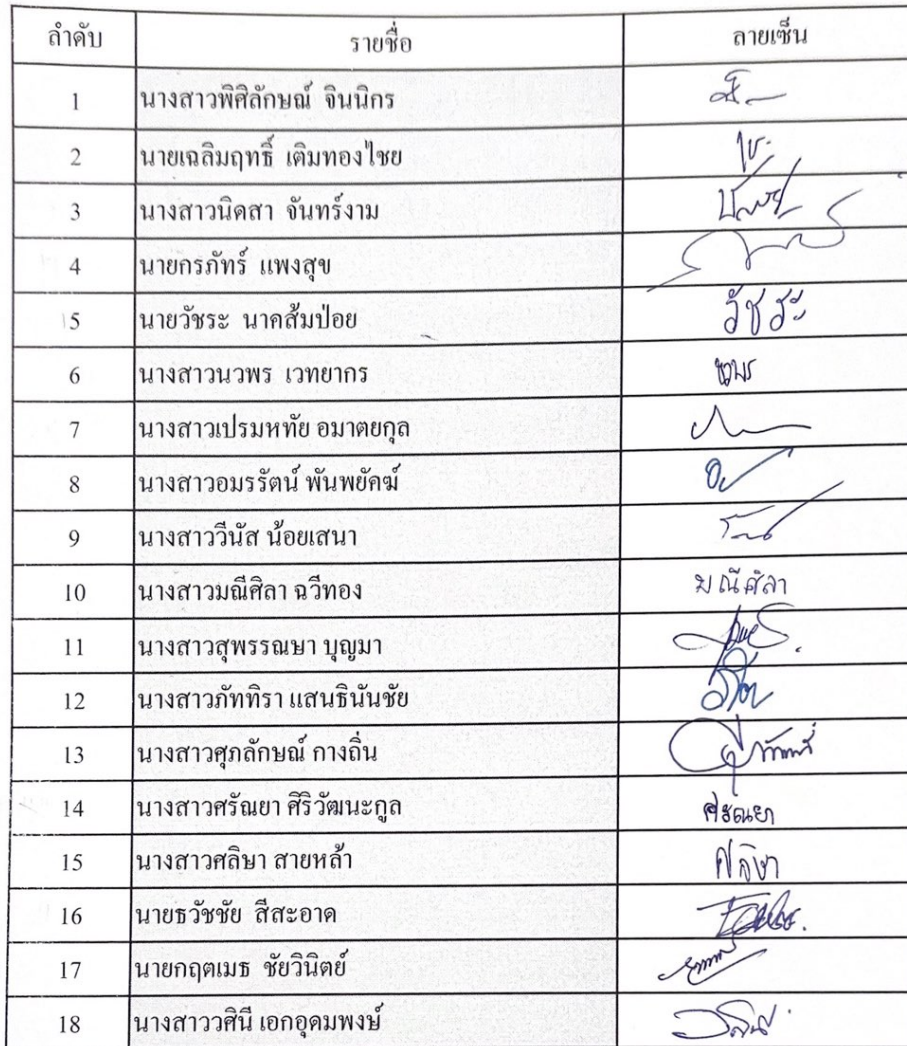 ลำดับ รายชื่อ ลายเซ็น
1 นางสาวพิศิลักษณ์ จินนิกร
2 นายเฉลิมฤทธิ์ เติมทองไชย
3 นางสาวนิดสา จันทร์งาม
4 นายกรภัทร์ แพงสุข
5 นายวัชระ นาคส้มป่อย วัชระ
6 นางสาวนวพร เวทยากร นวพร
7 นางสาวเปรมหทัย อมาตยกุล
8 นางสาวอมรรัตน์ พันพยัคฆ์
9 นางสาววีนัส น้อยเสนา
10 นางสาวมณีศิลา ฉวีทอง มณีศิลา
11 นางสาวสุพรรณษา บุญมา
12 นางสาวภัททิรา แสนธินันชัย
13 นางสาวศุภลักษณ์ กางถิ่น
14 นางสาวศรัณยา ศิริวัฒนะกูล ศรัณยา
15 นางสาวศลิษา สายหล้า ศลิษา
16 นายธวัชชัย สีสะอาด
17 นายกฤตเมธ ชัยวินิตย์
18 นางสาววศินี เอกอุดมพงษ์